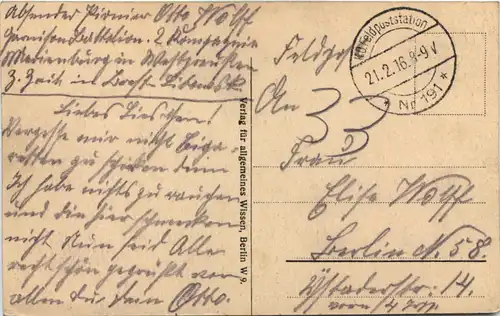 Absender Pionier Otto Wolf
Garnison Battalion. 2 Kompagnie
Marienburg in Westpreußen
z. Zeit in Brest-Litowsk.
Liebes Lieschen!
Vergesse mir nicht Ziga-
retten zu schicken denn
Ich habe nichts zu rauchen
und die hier schmecken
nicht Nun seid Alle
recht schön gegrüßt von
allen du dein Otto.
Verlag für allgemeines Wissen, Berlin W 9.
Feldpost
KD Feldpoststation
21.2.16. 8-9 V
* Nr 191 *
An
33
Frau
Elise Wolf
Berlin N. 58.
Ystaderstr. 14.
vorn